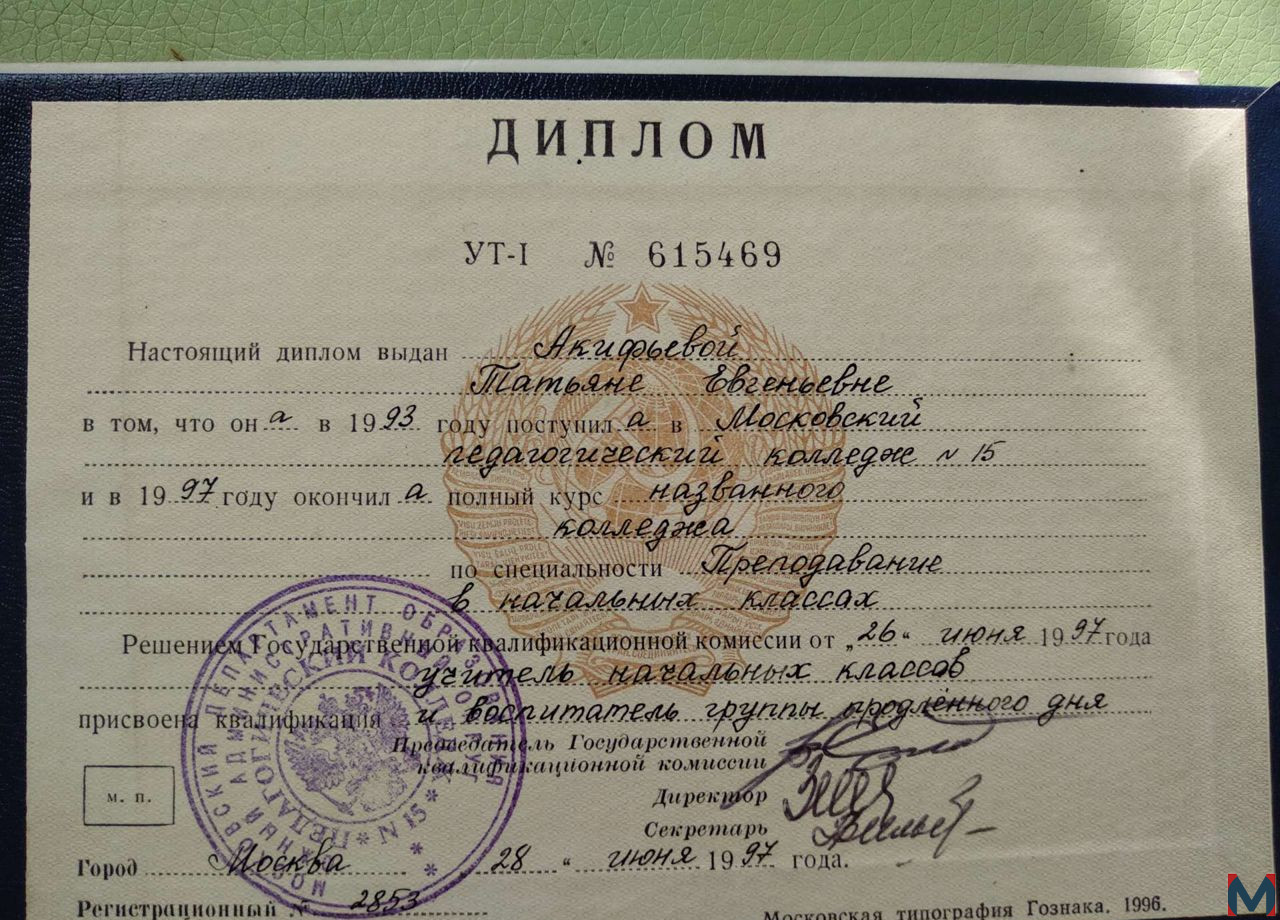 ДИПЛОМ
УТ-I № 615469
Настоящий диплом выдан Акифьевой
Татьяне Евгеньевне
в том, что она в 1993 году поступила в Московский
педагогический колледж № 15
и в 1997 году окончила полный курс названного
колледжа
по специальности Преподавание
в начальных классах
Решением Государственной квалификационной комиссии от „26“ июня 1997 года
учитель начальных классов
присвоена квалификация и воспитатель группы продлённого дня
Председатель Государственной
квалификационной комиссии
Директор
Секретарь
м. п.
Город Москва 28 “ июня 1997 года.
Регистрационный № 2853
Московская типография Гознака. 1996.
МОСКОВСКИЙ ДЕПАРТАМЕНТ ОБРАЗОВАНИЯ
ЮЖНЫЙ АДМИНИСТРАТИВНЫЙ ОКРУГ
ПЕДАГОГИЧЕСКИЙ КОЛЛЕДЖ
N 15
M